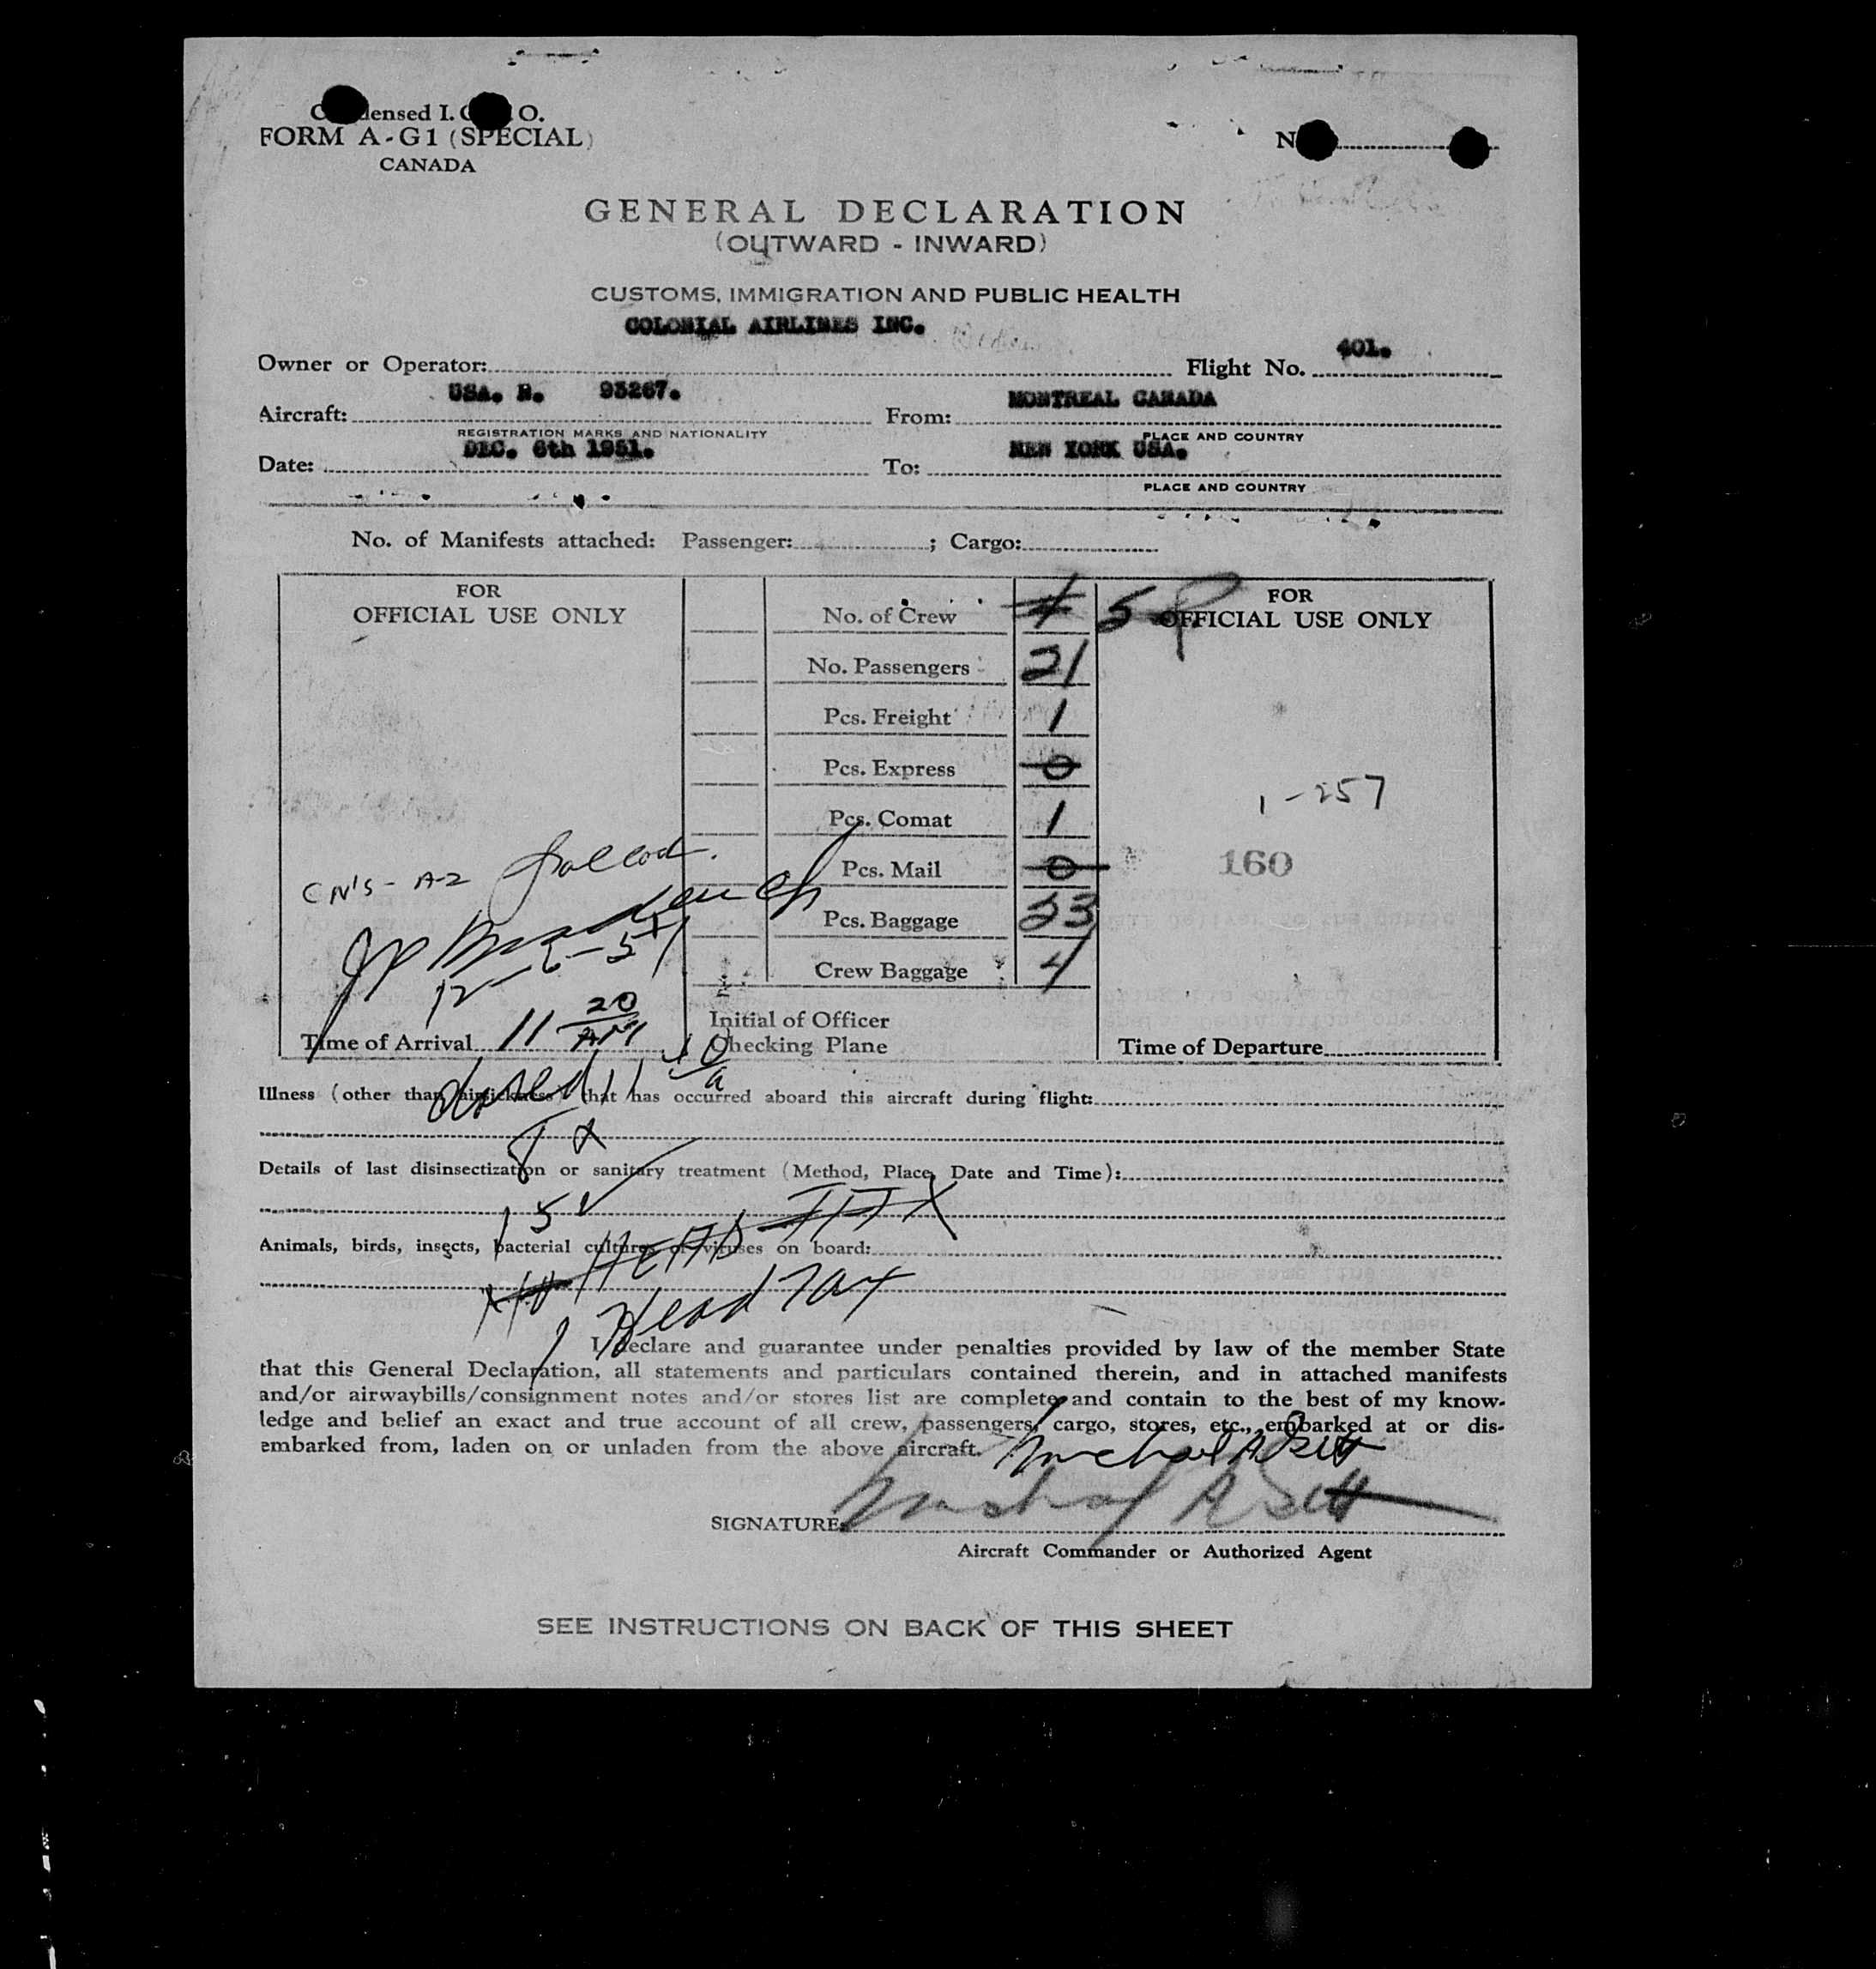 FORM A-G1 (SPECIAL)
CANADA
GENERAL DECLARATION
(OUTWARD - INWARD)
CUSTOMS, IMMIGRATION AND PUBLIC HEALTH
COLONIAL AIRLINES INC.
Owner or Operator: Flight No. 401.
USA. N. 93267. MONTREAL CANADA
Aircraft: From:
REGISTRATION MARKS AND NATIONALITY PLACE AND COUNTRY
DEC. 6th 1951. NEW YORK USA.
Date: To:
PLACE AND COUNTRY
No. of Manifests attached: Passenger: ; Cargo:
FOR
OFFICIAL USE ONLY
No. of Crew 4 5
FOR
OFFICIAL USE ONLY
No. Passengers 21
Pcs. Freight 1
Pcs. Express 0
1-257
Pcs. Comat 1
Pcs. Mail 0
160
CN'S - A-2
Pcs. Baggage 33
12-6-51
Crew Baggage 4
Initial of Officer
Checking Plane
Time of Arrival 11 20 AM
Time of Departure
Illness (other than airsickness) that has occurred aboard this aircraft during flight:
Details of last disinsectization or sanitary treatment (Method, Place, Date and Time):
Animals, birds, insects, bacterial cultures or viruses on board:
HEAD TAX
1 Head Tax
I declare and guarantee under penalties provided by law of the member State
that this General Declaration, all statements and particulars contained therein, and in attached manifests
and/or airwaybills/consignment notes and/or stores list are complete and contain to the best of my know-
ledge and belief an exact and true account of all crew, passengers, cargo, stores, etc., embarked at or dis-
embarked from, laden on or unladen from the above aircraft.
SIGNATURE:
Aircraft Commander or Authorized Agent
SEE INSTRUCTIONS ON BACK OF THIS SHEET